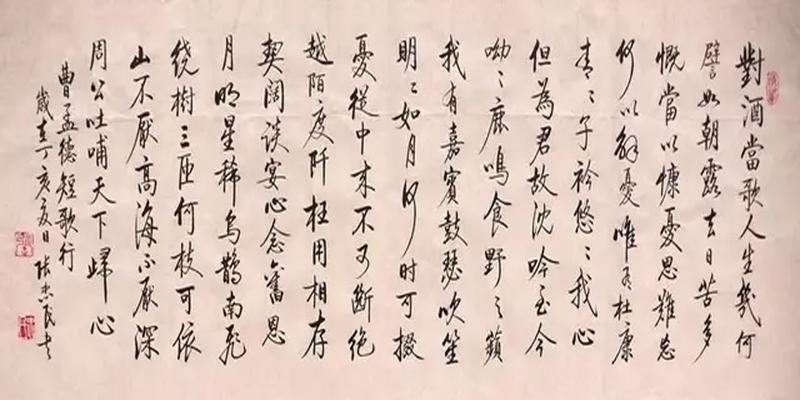 對酒當歌人生幾何
譬如朝露去日苦多
慨當以慷憂思難忘
何以解憂唯有杜康
青〻子衿悠〻我心
但為君故沈吟至今
呦〻鹿鳴食野之蘋
我有嘉賓鼓瑟吹笙
明〻如月何時可掇
憂從中來不可斷絕
越陌度阡枉用相存
契闊談宴心念舊恩
月明星稀烏鵲南飛
繞樹三匝何枝可依
山不厭高海不厭深
周公吐哺天下歸心
曹孟德短歌行
歲在丁亥夏日張杰民書